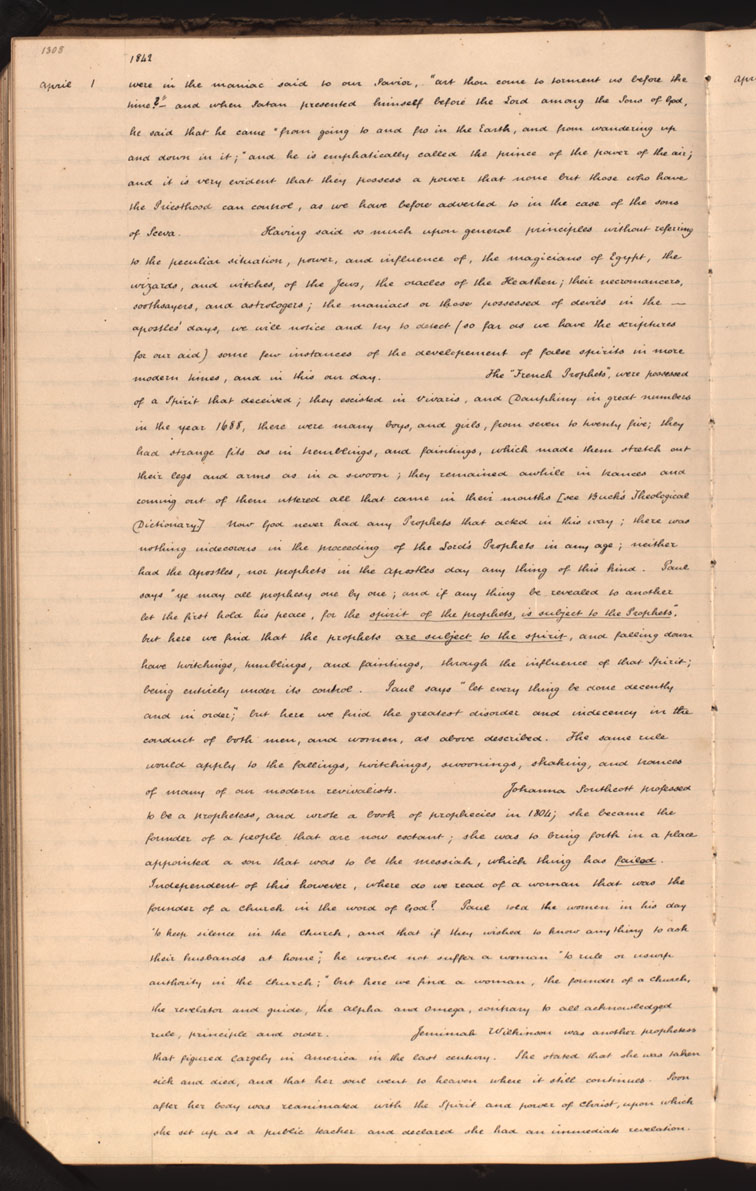 1308
1842
April 1 were in the maniac said to our Savior, "art thou come to torment us before the
time?" and when Satan presented himself before the Lord among the Sons of God,
he said that he came "from going to and fro in the Earth, and from wandering up
and down in it;" and he is emphatically called the prince of the power of the air;
and it is very evident that they possess a power that none but those who have
the Priesthood can control, as we have before adverted to in the case of the sons
of Sceva. Having said so much upon general principles without referring
to the peculiar situation, power, and influence of, the magicians of Egypt, the
wizards, and witches, of the Jews, the oracles of the Heathen; their necromancers,
soothsayers, and astrologers; the maniacs or those possessed of devils in the —
apostles' days, we will notice and try to detect (so far as we have the scriptures
for our aid) some few instances of the developement of false spirits in more
modern times, and in this our day. The "French Prophets", were possessed
of a Spirit that deceived; they existed in Vivaris, and Dauphiny in great numbers
in the year 1688, there were many boys, and girls, from seven to twenty five; they
had strange fits as in tremblings, and faintings, which made them stretch out
their legs and arms as in a swoon; they remained awhile in trances and
coming out of them uttered all that came in their mouths [see Buck's Theological
Dictionary] Now God never had any Prophets that acted in this way; there was
nothing indecorous in the proceeding of the Lord's Prophets in any age; neither
had the apostles, nor prophets in the apostles day any thing of this kind. Paul
says "ye may all prophesy one by one; and if any thing be revealed to another
let the first hold his peace, for the spirit of the prophets, is subject to the Prophets",
but here we find that the prophets are subject to the spirit, and falling down
have twitchings, tumblings, and faintings, through the influence of that Spirit;
being entirely under its control. Paul says "let every thing be done decently
and in order;" but here we find the greatest disorder and indecency in the
conduct of both men, and women, as above described. The same rule
would apply to the fallings, twitchings, swoonings, shaking, and trances
of many of our modern revivalists. Johanna Southcott professed
to be a prophetess, and wrote a book of prophecies in 1804; she became the
founder of a people that are now extant; she was to bring forth in a place
appointed a son that was to be the messiah, which thing has failed.
Independent of this however, where do we read of a woman that was the
founder of a church in the word of God? Paul told the women in his day
"to keep silence in the church, and that if they wished to know any thing to ask
their husbands at home"; he would not suffer a woman "to rule or usurp
authority in the church;" but here we find a woman, the founder of a church,
the revelator and guide, the alpha and omega, contrary to all acknowledged
rule, principle and order. Jemimah Wilkinson was another prophetess
that figured largely in America in the last century. She stated that she was taken
sick and died, and that her soul went to heaven where it still continues. Soon
after her body was reanimated with the Spirit and power of Christ, upon which
she set up as a public teacher and declared she had an immediate revelation.